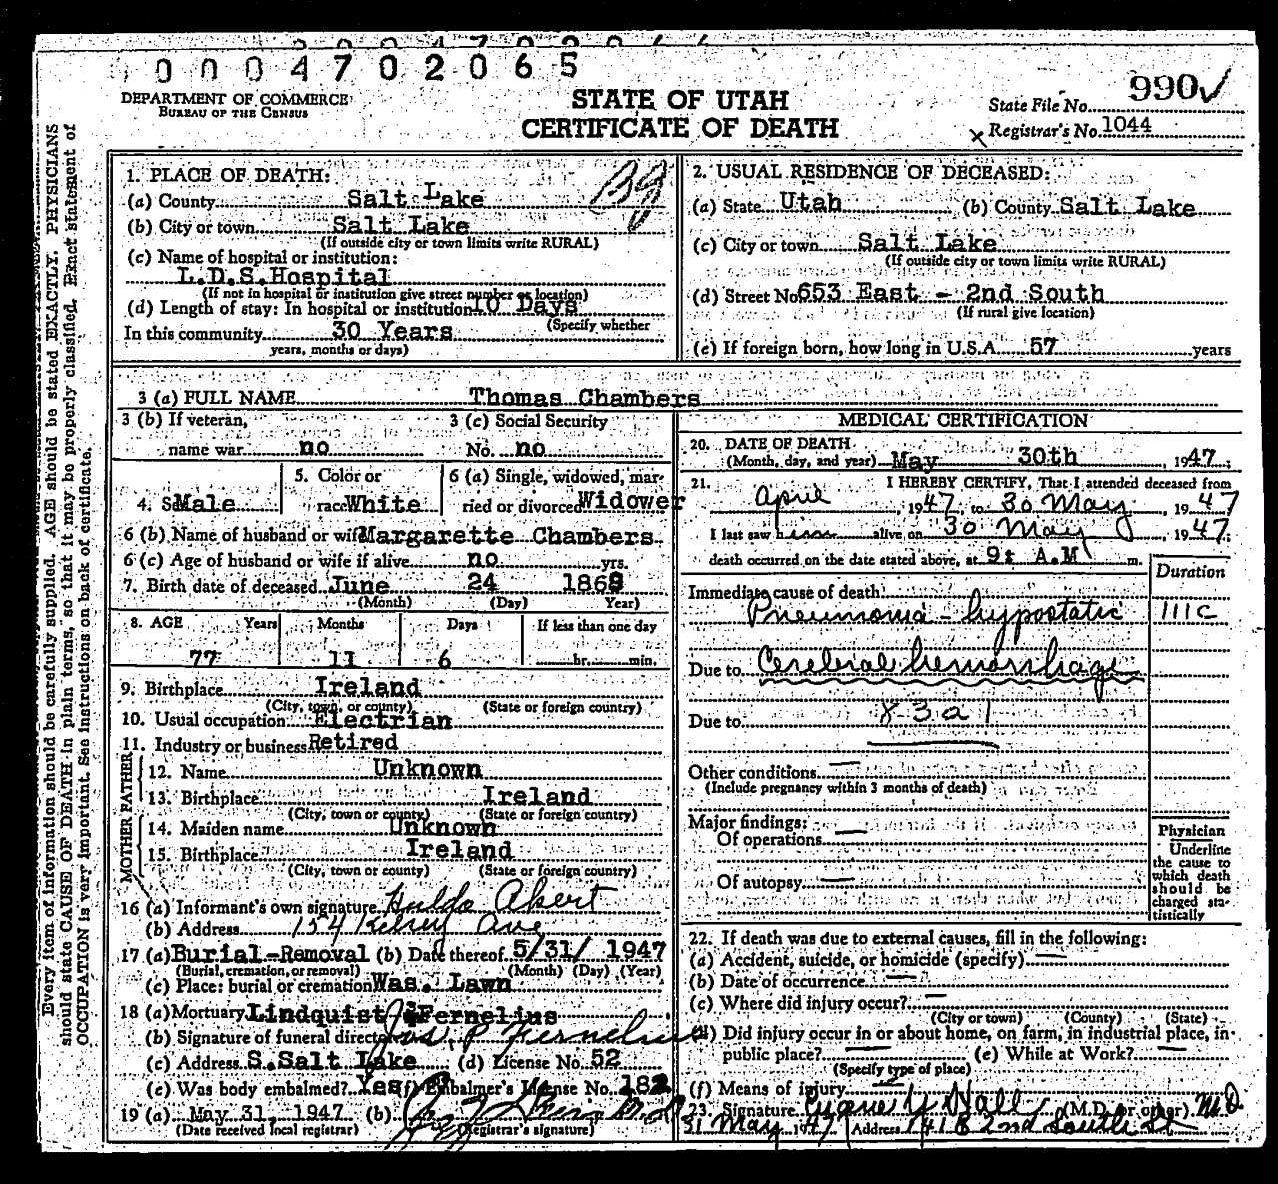 0 0 0 4 7 0 2 0 6 5
DEPARTMENT OF COMMERCE
BUREAU OF THE CENSUS
STATE OF UTAH
CERTIFICATE OF DEATH
State File No. 990 ✓
x Registrar's No. 1044
Every item of information should be carefully supplied. AGE should be stated EXACTLY. PHYSICIANS
should state CAUSE OF DEATH in plain terms, so that it may be properly classified. Exact statement of
OCCUPATION is very important. See instructions on back of certificate.
1. PLACE OF DEATH:
(a) County Salt Lake
(b) City or town Salt Lake
(If outside city or town limits write RURAL)
(c) Name of hospital or institution:
L.D.S. Hospital
(If not in hospital or institution give street number or location)
(d) Length of stay: In hospital or institution 10 Days
(Specify whether
In this community 30 Years
years, months or days)
2. USUAL RESIDENCE OF DECEASED:
(a) State Utah (b) County Salt Lake
(c) City or town Salt Lake
(If outside city or town limits write RURAL)
(d) Street No 653 East - 2nd South
(If rural give location)
(e) If foreign born, how long in U.S.A. 57 years
3 (a) FULL NAME Thomas Chambers
3 (b) If veteran,
name war no
3 (c) Social Security
No. no
4. Sex Male
5. Color or
race White
6 (a) Single, widowed, mar-
ried or divorced Widower
6 (b) Name of husband or wife Margarette Chambers
6 (c) Age of husband or wife if alive no yrs.
7. Birth date of deceased June 24 1869
(Month) (Day) Year)
8. AGE Years Months Days If less than one day
77 11 6 hr. min.
9. Birthplace Ireland
(City, town, or county) (State or foreign country)
10. Usual occupation Electrian
11. Industry or business Retired
FATHER
12. Name Unknown
13. Birthplace Ireland
(City, town or county) (State or foreign country)
MOTHER
14. Maiden name Unknown
15. Birthplace Ireland
(City, town or county) (State or foreign country)
16 (a) Informant's own signature Hulda Akert
(b) Address 154 Kelsey Ave
17 (a) Burial-Removal (b) Date thereof 5/31/ 1947
(Burial, cremation, or removal) (Month) (Day) (Year)
(c) Place: burial or cremation Was. Lawn
18 (a) Mortuary Lindquist & Fernelius
(b) Signature of funeral director Jos. P. Fernelius
(c) Address S. Salt Lake (d) License No. 52
(e) Was body embalmed? Yes (f) Embalmer's License No. 182
19 (a) May 31, 1947 (b)
(Date received local registrar) (Registrar's signature)
MEDICAL CERTIFICATION
20. DATE OF DEATH
(Month, day, and year) May 30th, 1947;
21. I HEREBY CERTIFY, That I attended deceased from
April, 1947, to 30 May, 1947
I last saw him alive on 30 May, 1947;
death occurred on the date stated above, at 9: A.M m.
Duration
Immediate cause of death
Pneumonia - hypostatic 111C
Due to Cerebral hemorrhage
Due to 83a1
Other conditions —
(Include pregnancy within 3 months of death)
Major findings:
Of operations —
Of autopsy —
Physician
Underline
the cause to
which death
should be
charged sta-
tistically
22. If death was due to external causes, fill in the following:
(a) Accident, suicide, or homicide (specify) —
(b) Date of occurrence —
(c) Where did injury occur? —
(City or town) (County) (State)
(d) Did injury occur in or about home, on farm, in industrial place, in
public place? — (e) While at Work? —
(Specify type of place)
(f) Means of injury —
23. Signature Hall (M.D. or other) M.D.
31 May 1947 Address 2nd South St